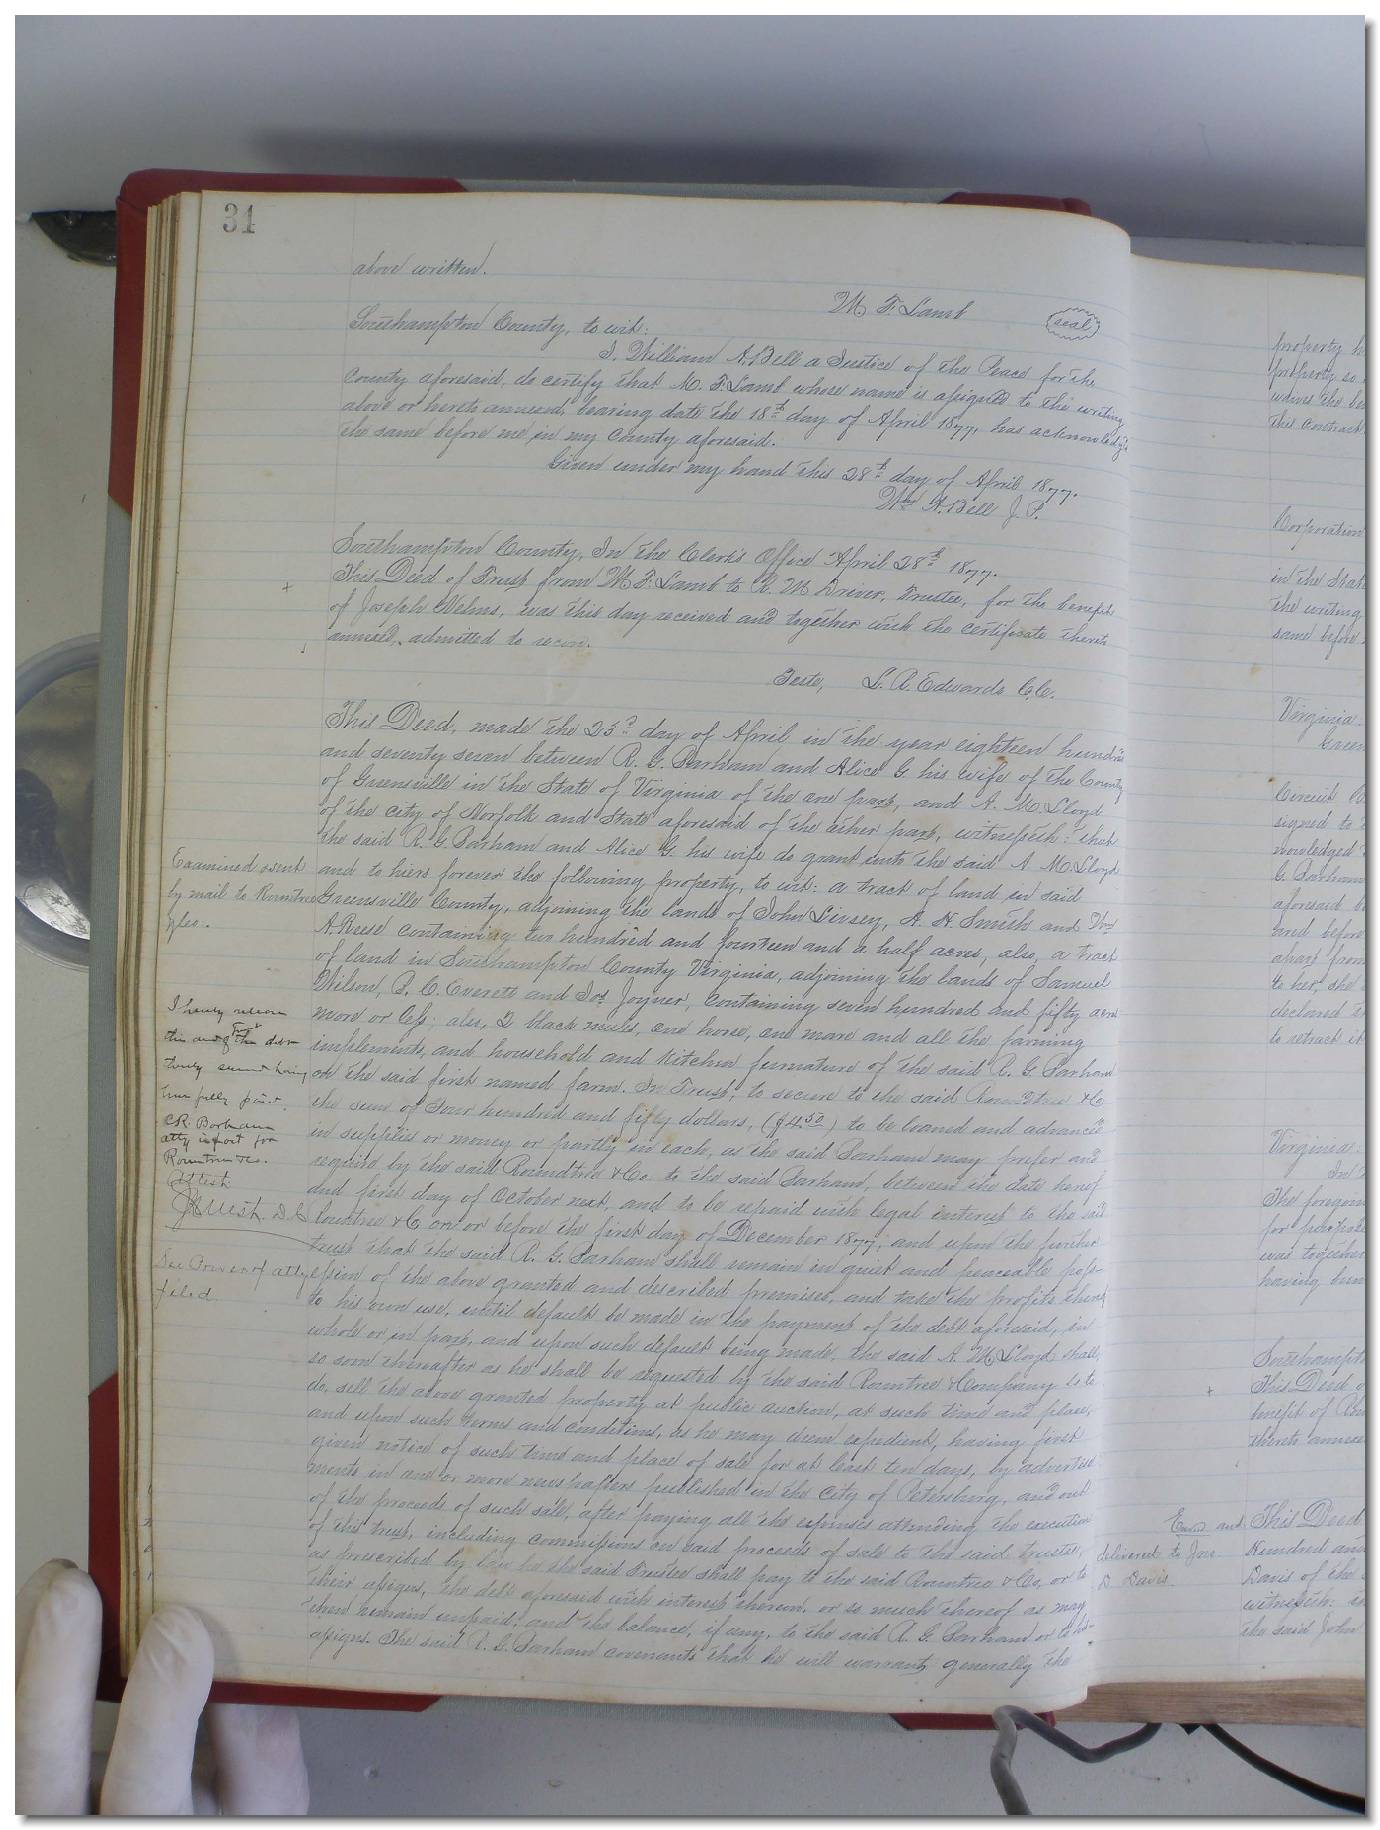 31
above written.
M. F. Lamb (seal)
Southampton County, to wit:
I, William A. Bell a Justice of the Peace for the
County aforesaid, do certify that M. F. Lamb whose name is assigned to the writing
above or hereto annexed, bearing date the 18th day of April 1877, has acknowledg'd
the same before me in my County aforesaid.
Given under my hand this 28th day of April 1877.
Wm A. Bell J. P.
Southampton County, In the Clerk's Office April 28th 1877.
This Deed of Trust from M. F. Lamb to R. M Driver, Trustee, for the benefit
of Joseph Nelms, was this day received and together with the certificate thereto
annexed, admitted to record.
Teste, L. R. Edwards C.C.
This Deed, made the 23d day of April in the year eighteen hundred
and seventy seven between R. G. Parham and Alice G his wife of the County
of Greensville in the State of Virginia of the one part, and A. M. Lloyd
of the city of Norfolk and State aforesaid of the other part, witnesseth: that
the said R. G. Parham and Alice G. his wife do grant unto the said A M. Lloyd
and to hiers forever the following property, to wit: a tract of land in said
Greensville County, adjoining the lands of John Livsey, A. H. Smith and Wm
A Reese containing two hundred and fourteen and a half acres, also, a tract
of land in Southampton County Virginia, adjoining the lands of Samuel
Wilson, P. C. Everett and Jos Joyner, containing seven hundred and fifty acres
more or less; also, 2 black mules, one horse, one mare and all the farming
implements, and household and kitchen furnature of the said R. G. Parham
on the said first named farm. In Trust, to secure to the said Rountree & Co
the sum of Four hundred and fifty dollars, ($450) to be loaned and advanced
in supplies or money or partly in each, as the said Parham may prefer and
require by the said Roundtree & Co. to the said Parham, between the date hereof
and first day of October next, and to be repaid with legal interest to the said
Rountree & C on or before the first day of December 1877; and upon the further
trust that the said R. G. Parham shall remain in quiet and peaceable poss-
ession of the above granted and described premises, and take the profits thereof
to his own use, until default be made in the payment of the debt aforesaid, in
whole or in part, and upon such default being made, the said A. M. Lloyd shall,
so soon thereafter as he shall be requested by the said Rountree & Company so to
do, sell the above granted property at public auction, at such time and place,
and upon such terms and conditions, as he may deem expedient, having first
given notice of such time and place of sale for at least ten days, by advertise
ments in one or more newspapers published in the city of Petersburg, and out
of the proceeds of such sale, after paying all the expenses attending the execution
of this trust, including commissions on said proceeds of sale to the said trustee,
as prescribed by law he the said Trustee shall pay to the said Rountree & Co, or to
their assigns, the debt aforesaid with interest thereon, or so much thereof as may
then remain unpaid; and the balance, if any, to the said R. G. Parham or to his
assigns. The said R. G. Parham covenants that he will warrant generally the
Examined & sent
by mail to Rountree
I hereby release
this deed of Trust the debt
hereby secured having
been fully paid.
C R.
atty in fact for
Rountree & Co.
Attest
D C
See Power of atty
filed
property
property so
waives the
this contract
Corporation
in the State
the writing
same before
Virginia
Circuit
signed to
nowledged
C. Parham
aforesaid
and before
apart from
to her, she
declared
to retract it
Virginia
In
The foregoin
for
was together
having been
Southampton
This Deed
benefit of
thereto annexe
Exm'd and
delivered to
D Davis
This Deed
Hundred and
Davis of the
witnesseth:
the said John